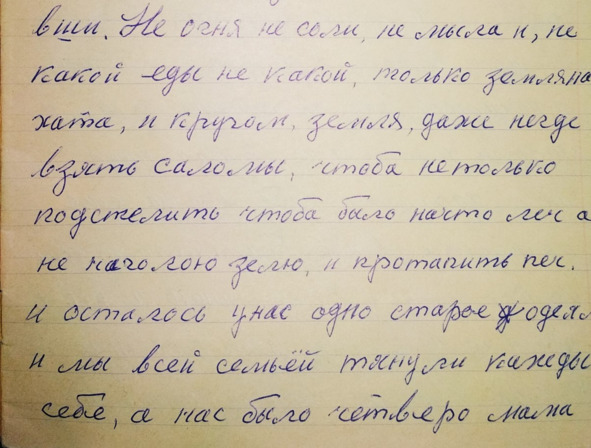 вши. Не огня не соли, не мыла н, не
какой еды не какой, только земляна
хата, и кругом, земля, даже негде
взять саломы, чтоба нетолько
подстелить чтоба было начто леч а
не наголою земю, и протапить печ.
и осталось унас одно старое одеял
и мы всей семьёй тянули кажды
себе, а нас было четверо мама